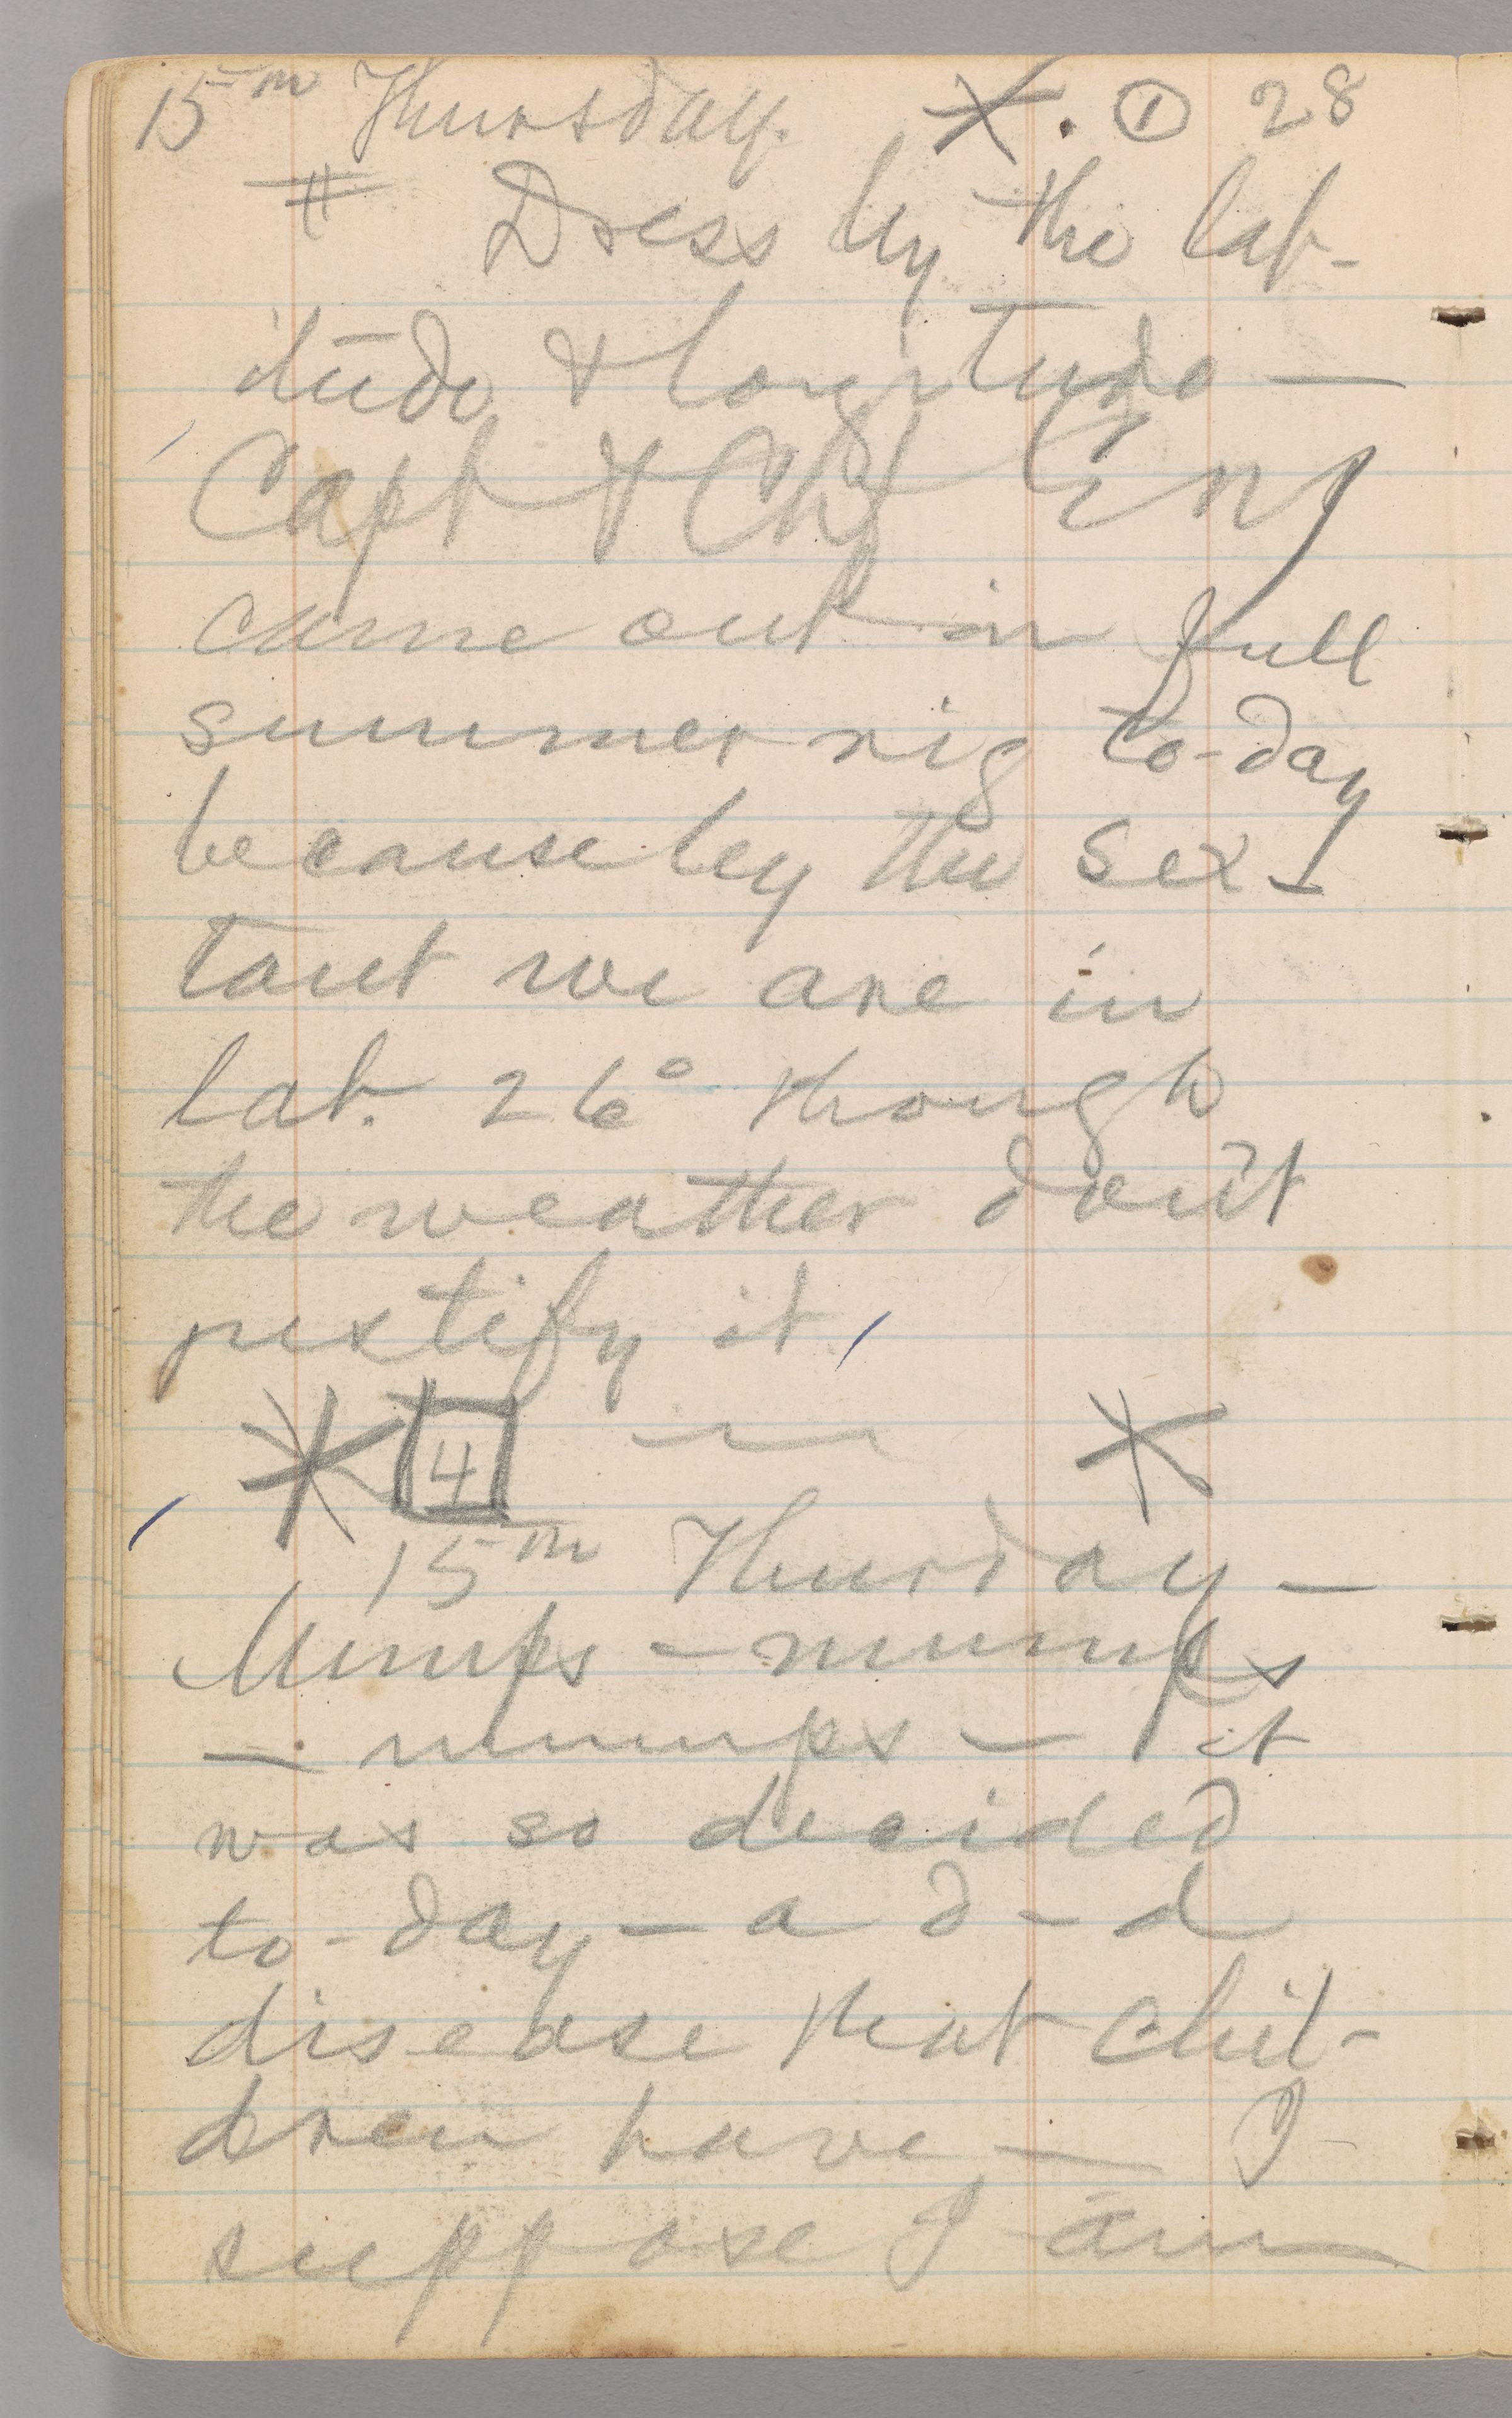 15th Thursday. X. ① 28
# Dress by the lat-
itude & longitude —
Capt & Chf Eng
came out in full
summer rig to-day
because by the sex-
tant we are in
lat. 26° though
the weather don't
justify it.
* 4 — *
15th Thursday —
Mumps — mumps
— mumps — it
was so decided
to-day — a d—d
disease that chil-
dren have — I
suppose I am